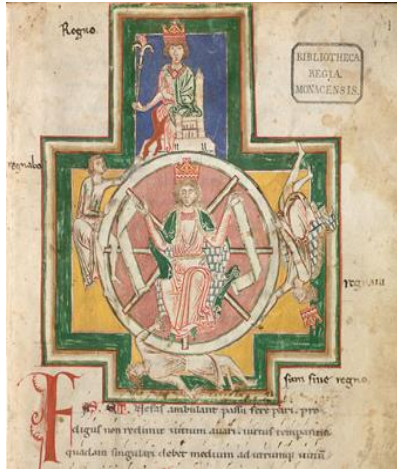 Regno.
BIBLIOTHECA
REGIA
MONACENSIS.
regnabo
regnaui
sum sine regno.
Fas et nefas ambulant passu fere pari. pro
digus non redimit uitium auari. uirtus temperantia
quadam singulari debet medium ad utrumque uitium